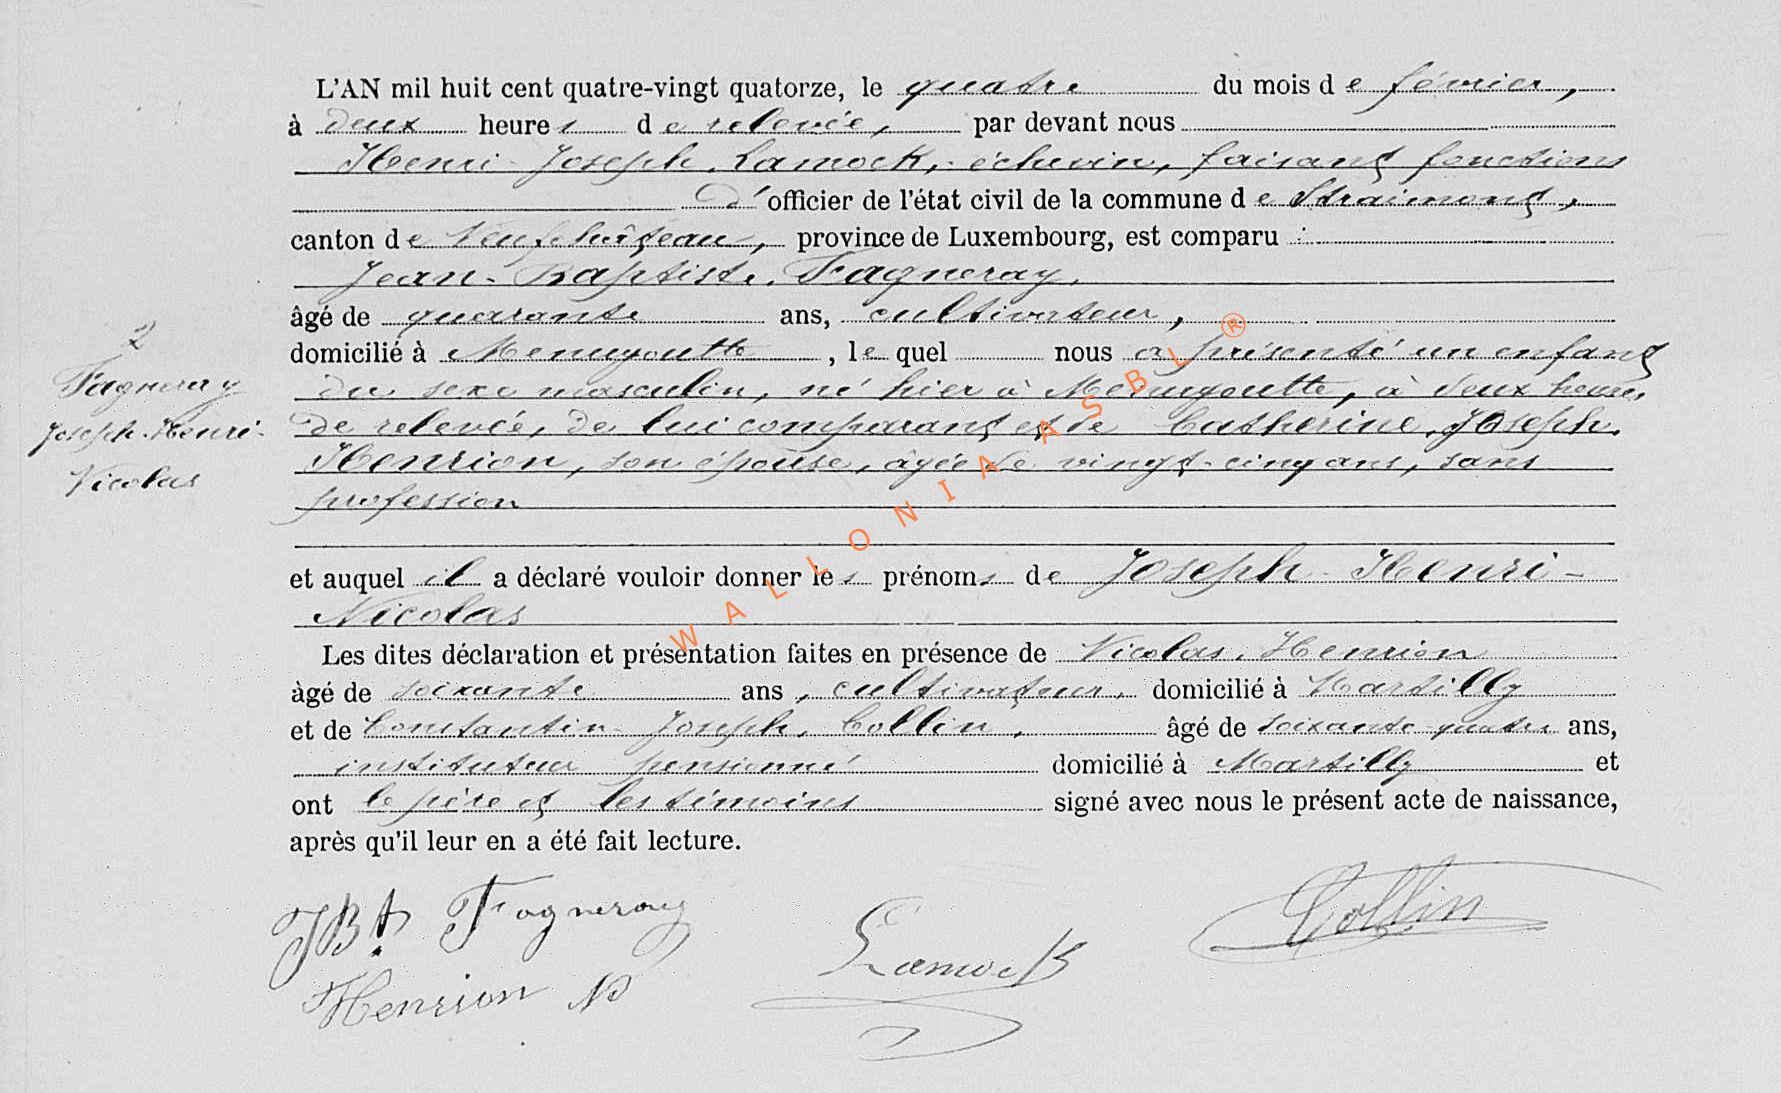 L'AN mil huit cent quatre-vingt quatorze, le quatre du mois de février,
à deux heures de relevée, par devant nous
Henri-Joseph Lamock, échevin, faisant fonctions
d'officier de l'état civil de la commune de Straimont,
canton de Neufchâteau, province de Luxembourg, est comparu :
Jean-Baptiste Fagneray,
âgé de quarante ans, cultivateur,
domicilié à Menugoutte, lequel nous a présenté un enfant
2
Fagneray
Joseph-Henri-
Nicolas
du sexe masculin, né hier à Menugoutte, à deux heures
de relevée, de lui comparant et de Catherine Joseph
Henrion, son épouse, âgée de vingt-cinq ans, sans
profession
et auquel il a déclaré vouloir donner les prénoms de Joseph-Henri-
Nicolas
Les dites déclaration et présentation faites en présence de Nicolas Henrion
âgé de soixante ans, cultivateur, domicilié à Martilly
et de Constantin-Joseph Collin, âgé de soixante-quatre ans,
instituteur pensionné domicilié à Martilly et
ont le père et les témoins signé avec nous le présent acte de naissance,
après qu'il leur en a été fait lecture.
JBt Fagneray
Collin
Lamock
Henrion N
WALLONIA ASBL ®